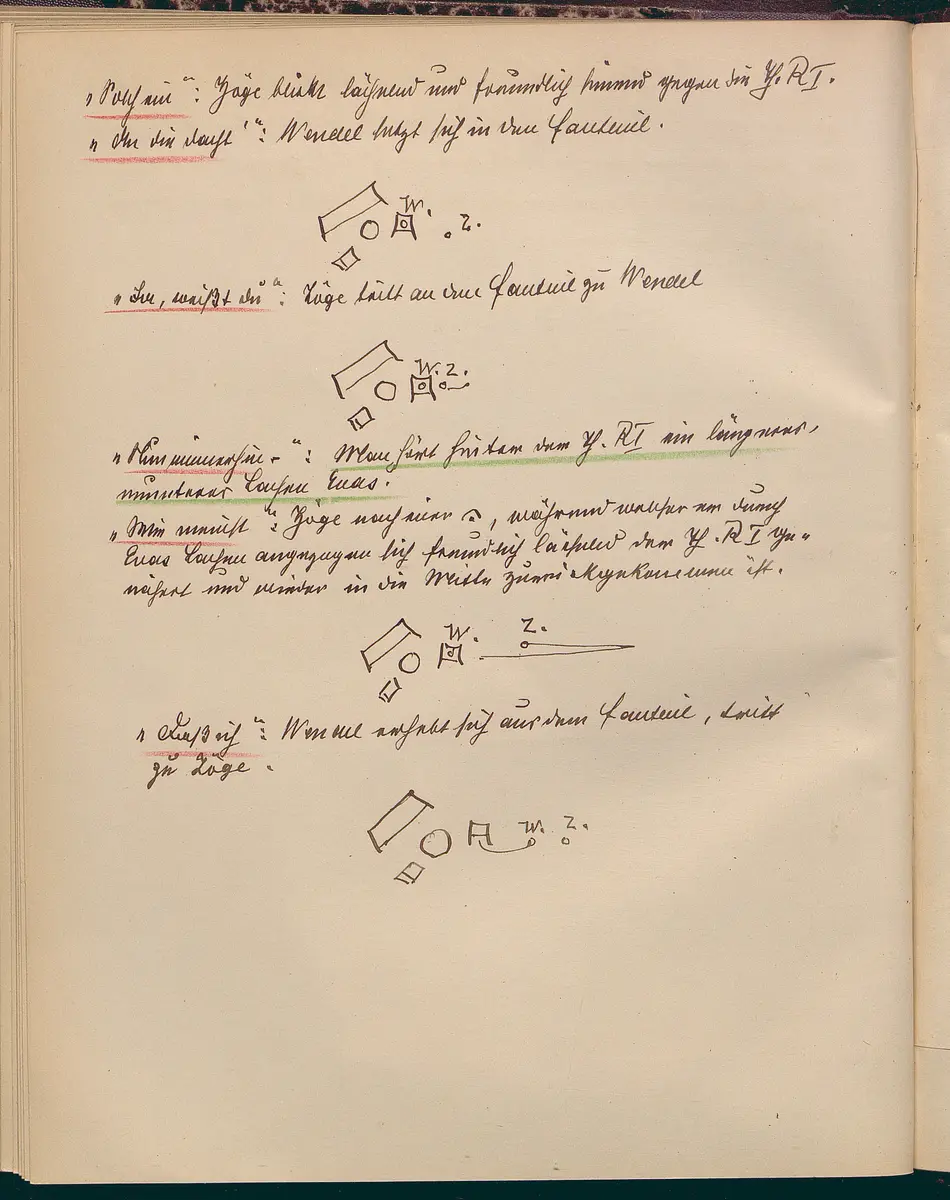 „Solch ein“: Zöge blickt lächelnd und freundlich sinnend gegen die Th. R I.
„An die dacht'“: Wendel setzt sich in den Fauteuil.
W. Z.
„Ja, weißt du“: Zöge tritt an den Fauteuil zu Wendel
W. Z.
„Nun immerhin-“: Man hört hinter der Th. RI ein längeres,
munteres Lachen Evas.
„Wie meinst“: Zöge nach einer 𝄐, während welcher er durch
Evas Lachen angezogen sich freundlich lächelnd der Th. R I ge-
nähert und wieder in die Mitte zurückgekommen ist.
W. Z.
„Daß ich“: Wendel erhebt sich aus dem Fauteuil, tritt
zu Zöge.
W. Z.